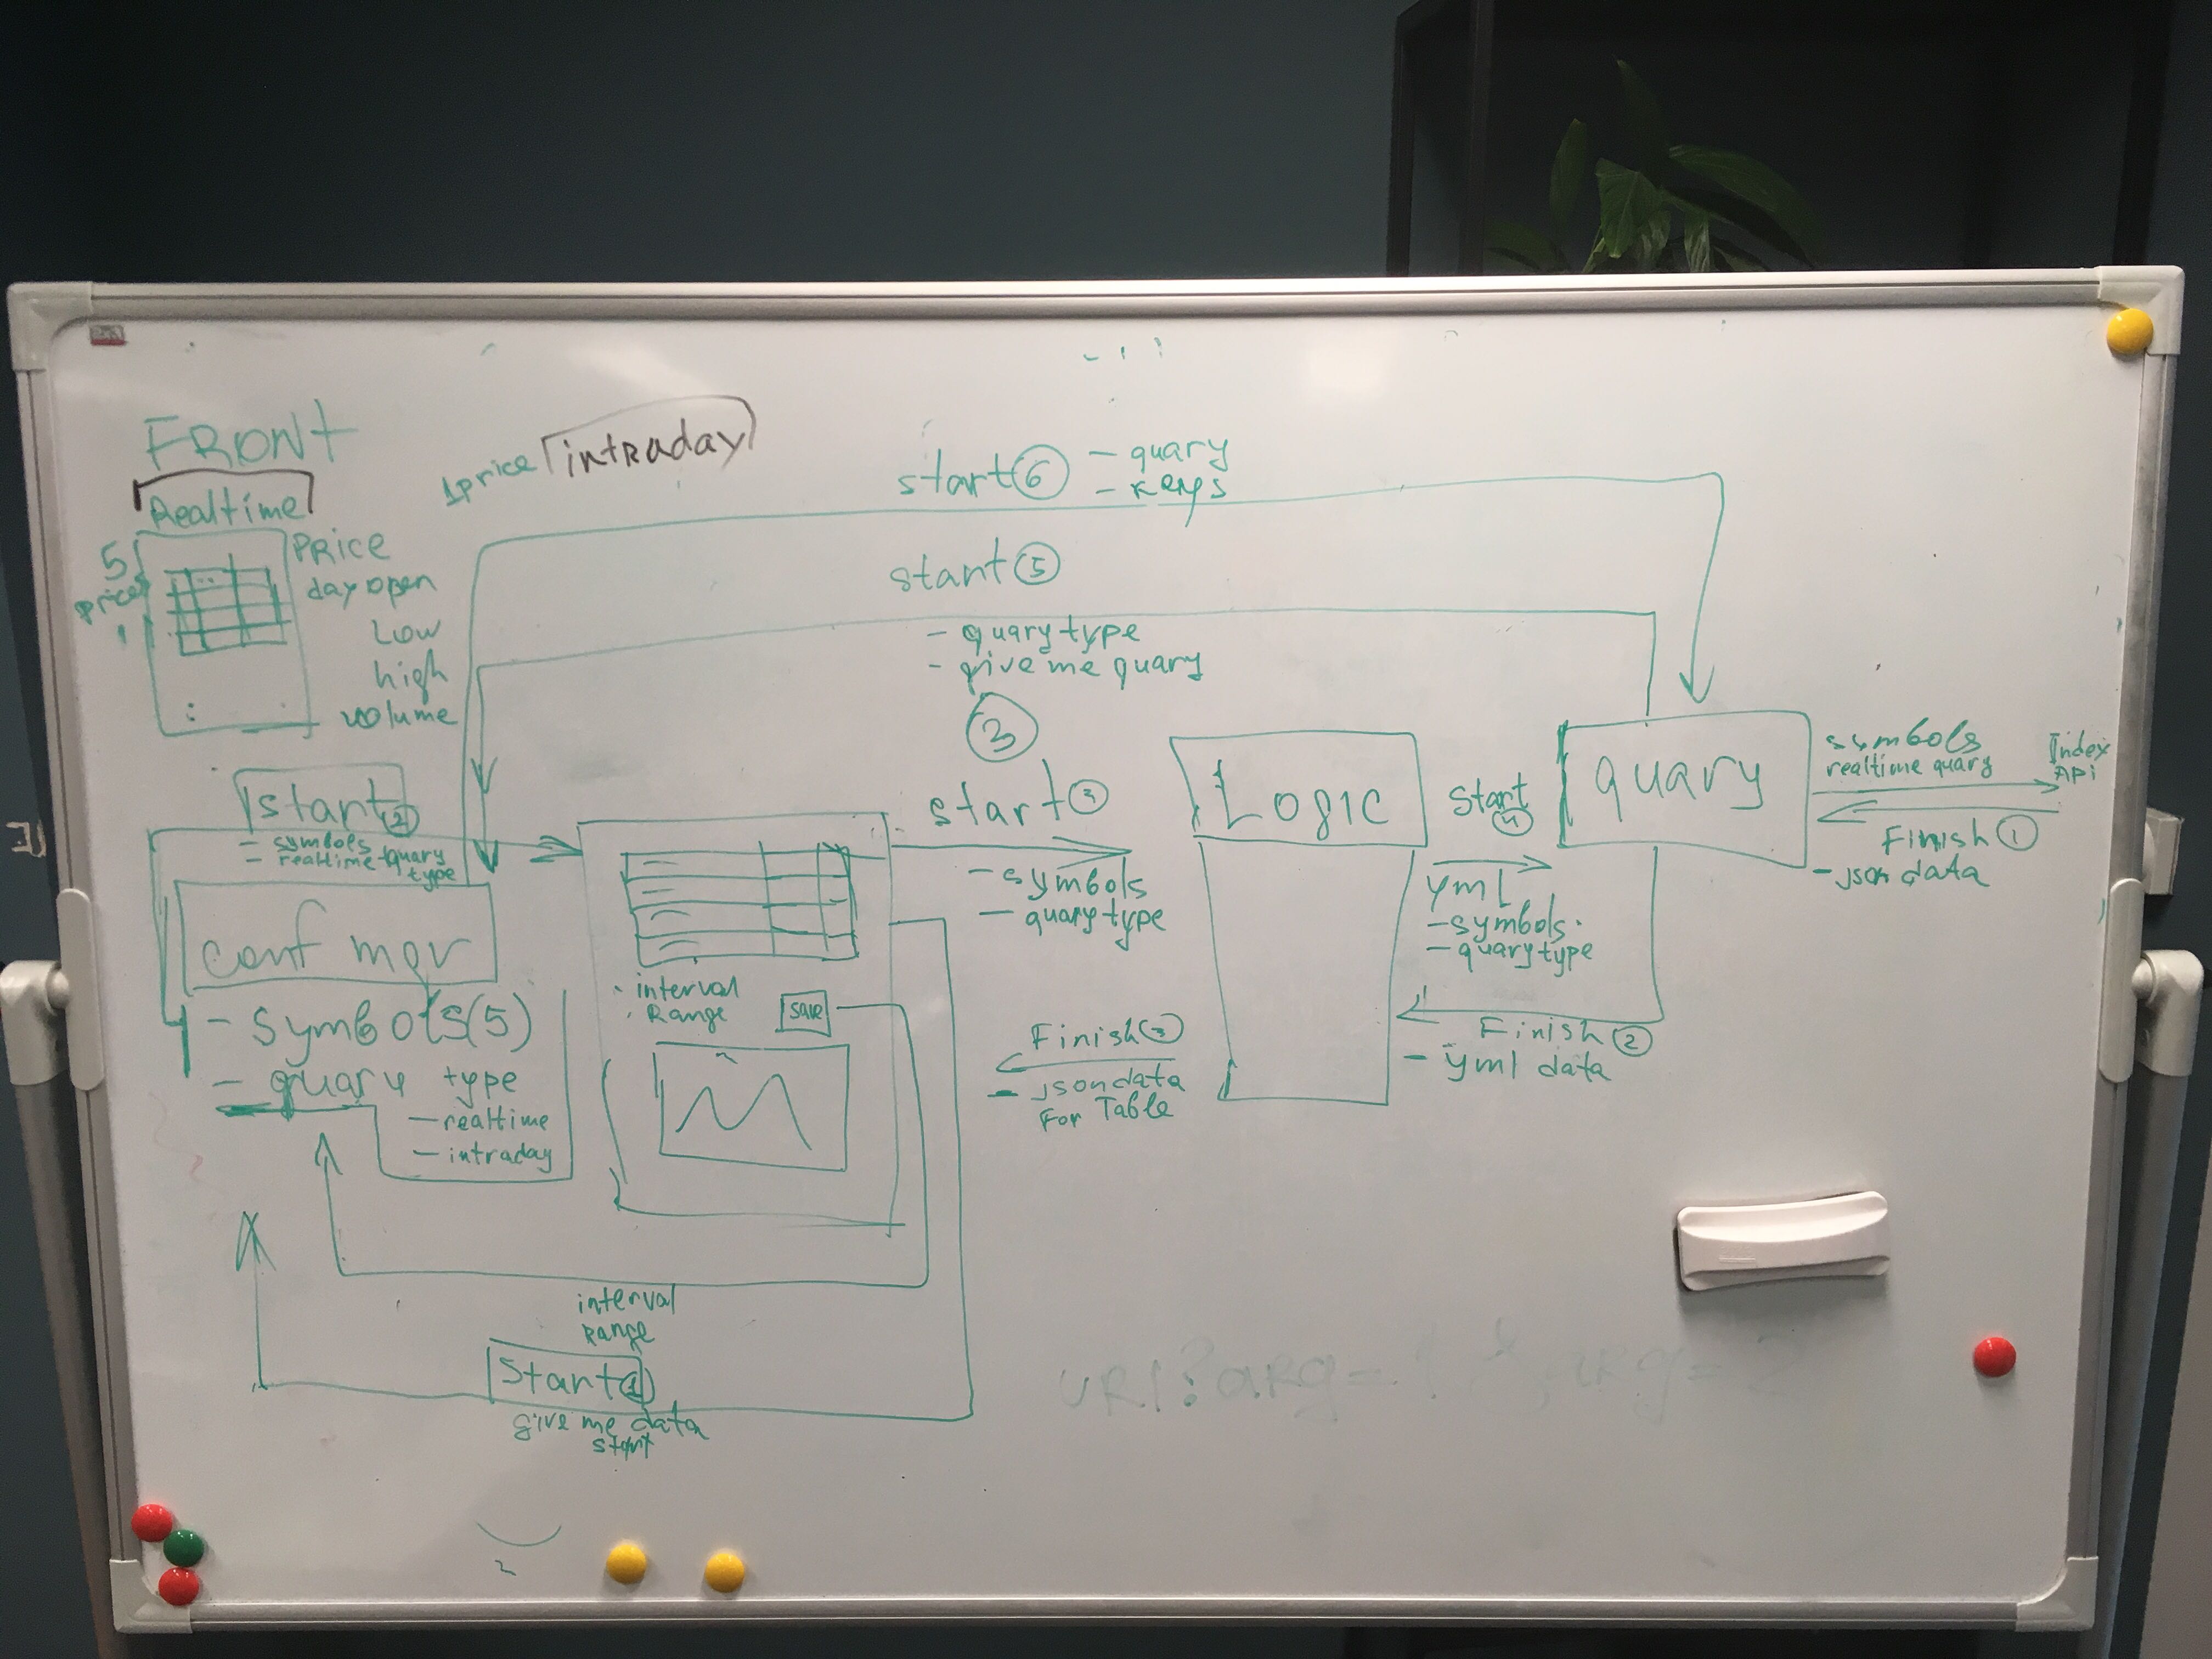 FRONT
Realtime
5
prices
PRICE
day open
Low
high
volume
1price
intRaday
start 6
- quary
- keys
start 5
- quary type
- give me quary
3
start 2
- symbols
- realtime quary
type
conf mgr
- symbols(5)
- quary type
- realtime
- intraday
interval
Range
save
start 3
- symbols
- quary type
Finish 3
- json data
For Table
Logic
Start 4
yml
- symbols
- quary type
Finish 2
- yml data
quary
symbols
realtime quary
Index
Api
Finish 1
- json data
interval
Range
Start 1
give me data
start
URl?arg=1
arg=2